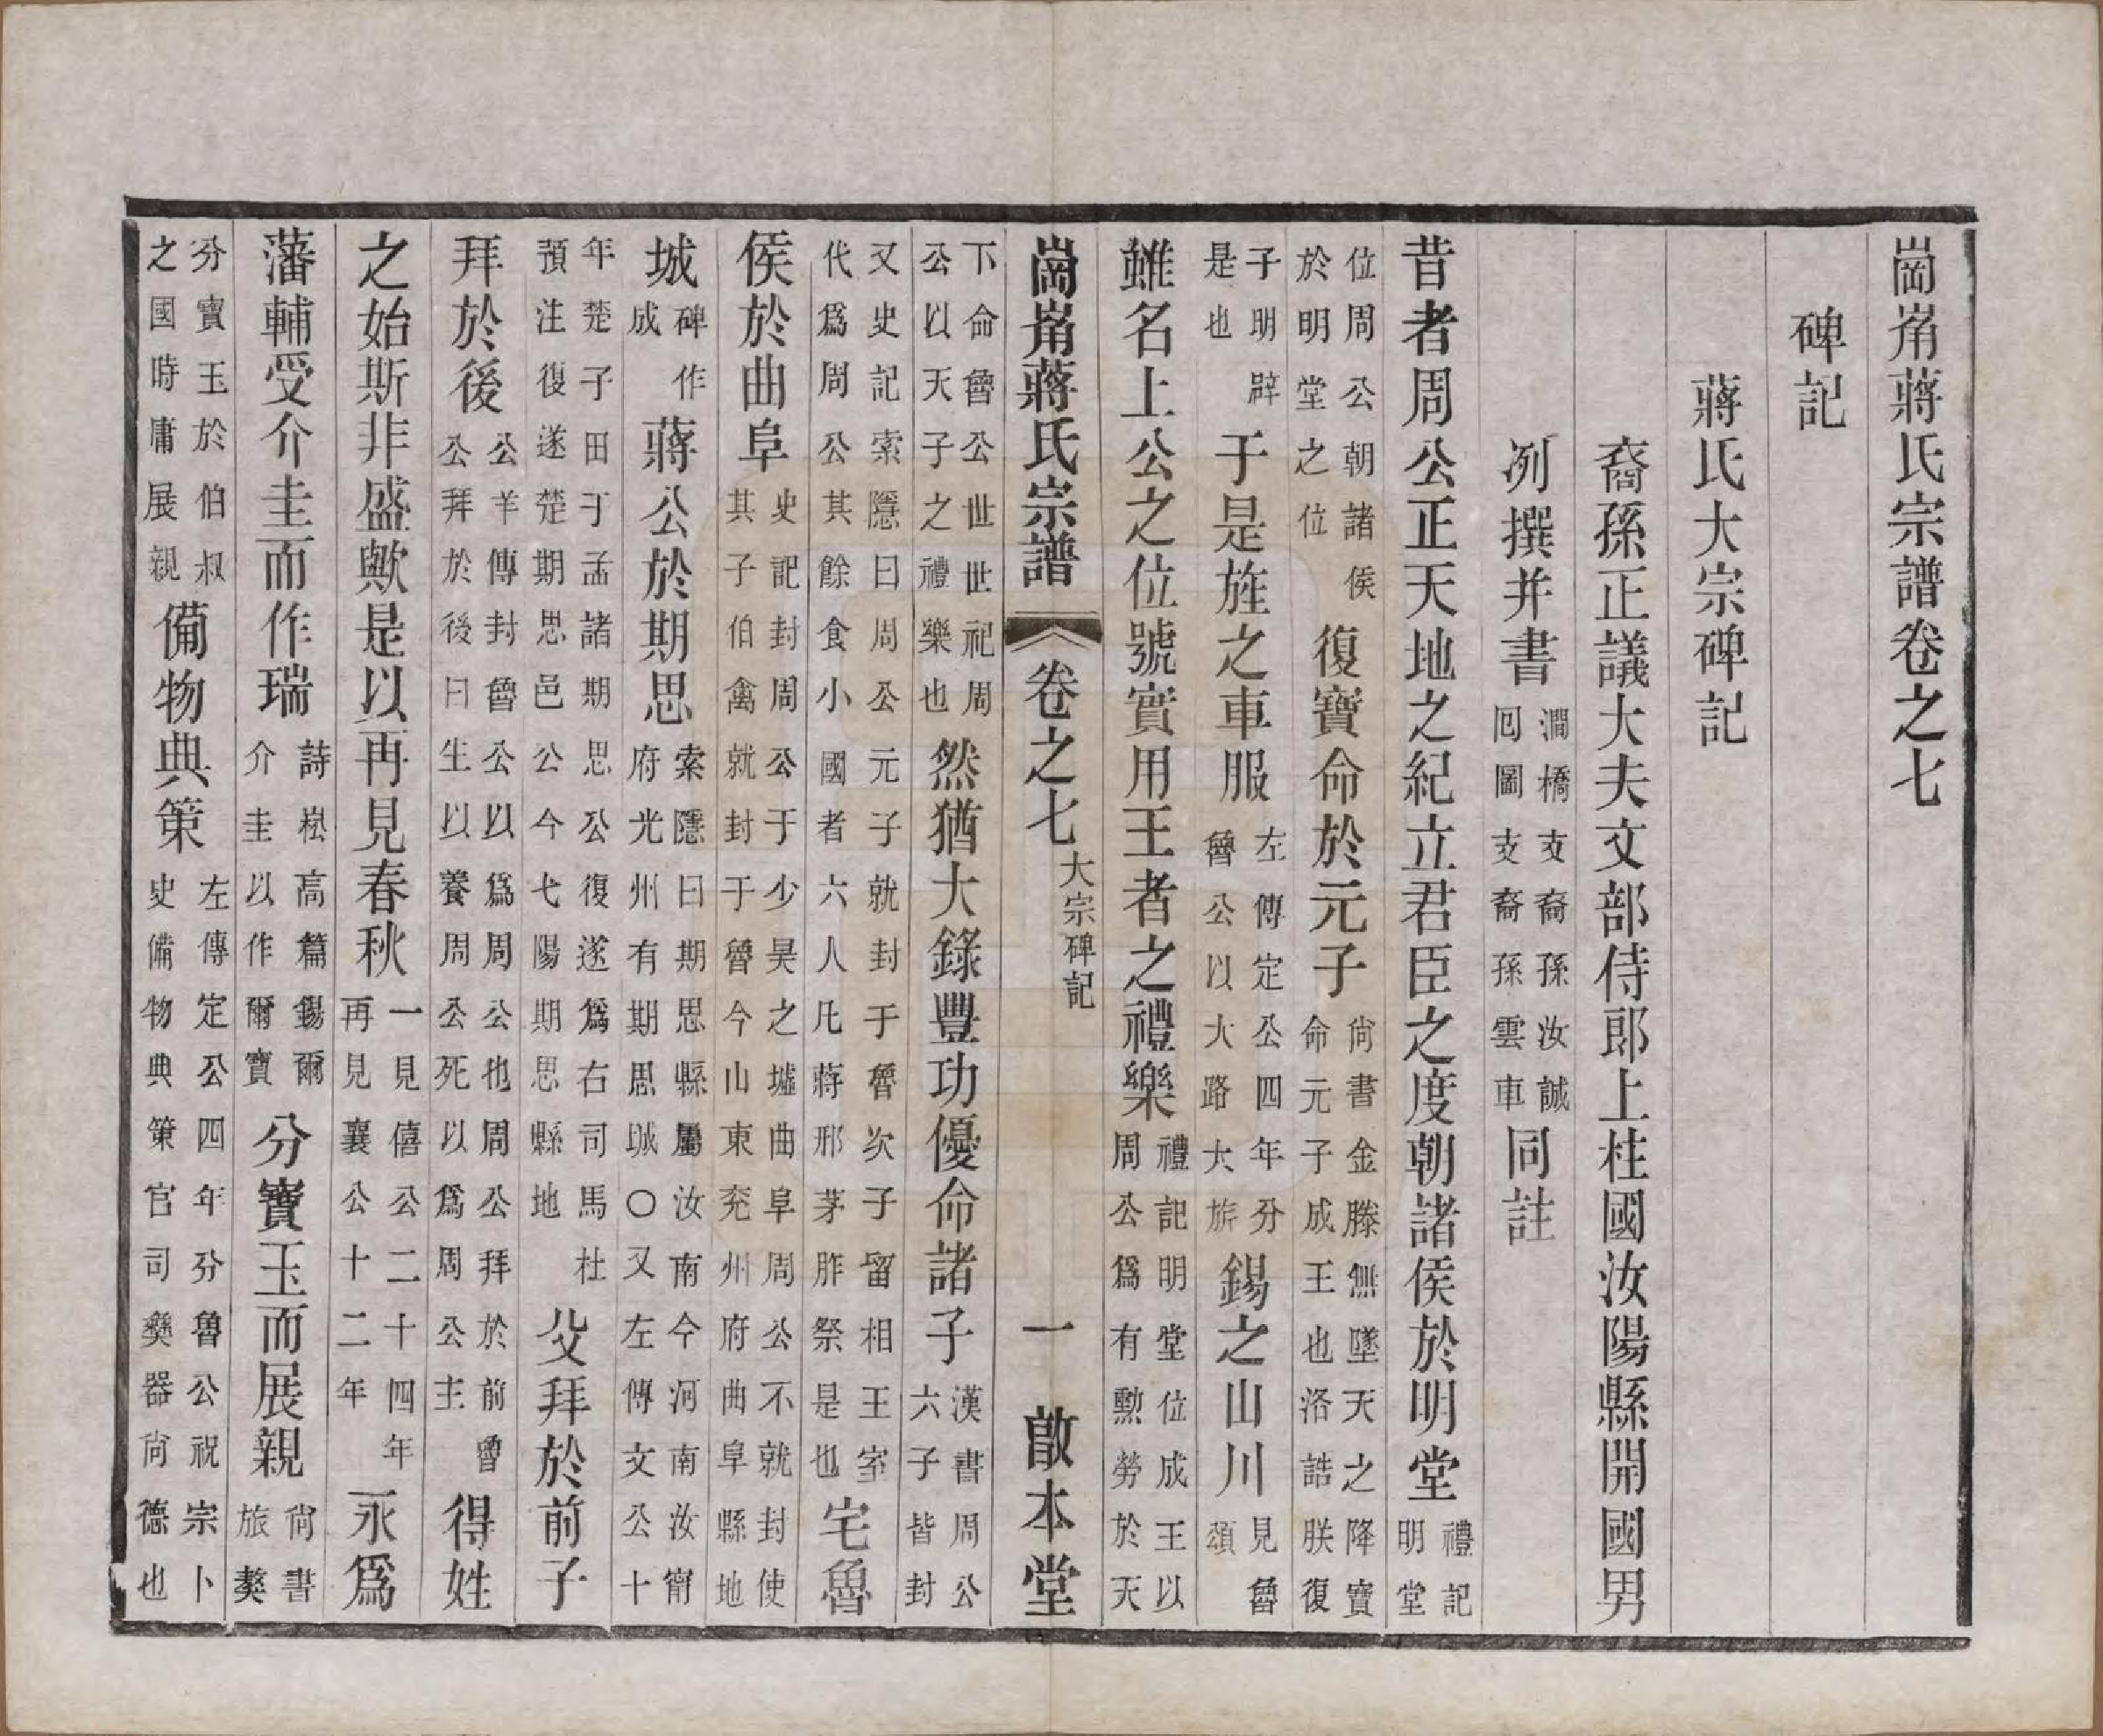 崗蔣氏宗譜卷之七
碑記
蔣氏大宗碑記
裔孫正議大夫文部侍郎上柱國汝陽縣開國男
冽撰并書澗橋支裔孫汝誠囘圖支裔孫雲車同註
昔者周公正天地之紀立君臣之度朝諸侯於明堂禮記明堂
位周公朝諸侯於明堂之位復寶命於元子尚書金滕無墜天之降寶命元子成王也洛誥朕復
子明辟是也于是旌之車服左傳定公四年分魯公以大路大旂錫之山川見魯頌
雖名上公之位號實用王者之禮樂禮記明堂位成王以周公爲有勲勞於天
崗蔣氏宗譜 卷之七 大宗碑記 一 啟本堂
下命魯公世世祀周公以天子之禮樂也然猶大錄豐功優命諸子漢書周公六子皆封
又史記索隱曰周公元子就封于魯次子留相王室代爲周公其餘食小國者六人凡蔣邢茅胙祭是也宅魯
侯於曲阜史記封周公于少昊之墟曲阜周公不就封使其子伯禽就封于魯今山東兖州府曲阜縣地
城碑作成蔣公於期思索隱曰期思縣屬汝南今河南汝甯府光州有期思城○又左傳文公十
年楚子田于孟諸期思公復遂爲右司馬杜預注復遂楚期思邑公今弋陽期思縣地父拜於前子
拜於後公羊傳封魯公以爲周公也周公拜於前魯公拜於後曰生以養周公死以爲周公主得姓
之始斯非盛歟是以再見春秋一見僖公二十四年再見襄公十二年永爲
藩輔受介圭而作瑞詩崧高篇錫爾介圭以作爾寶分寶玉而展親尚書旅獒
分寶玉於伯叔之國時庸展親備物典策左傳定公四年分魯公祝宗卜史備物典策官司彝器尚德也